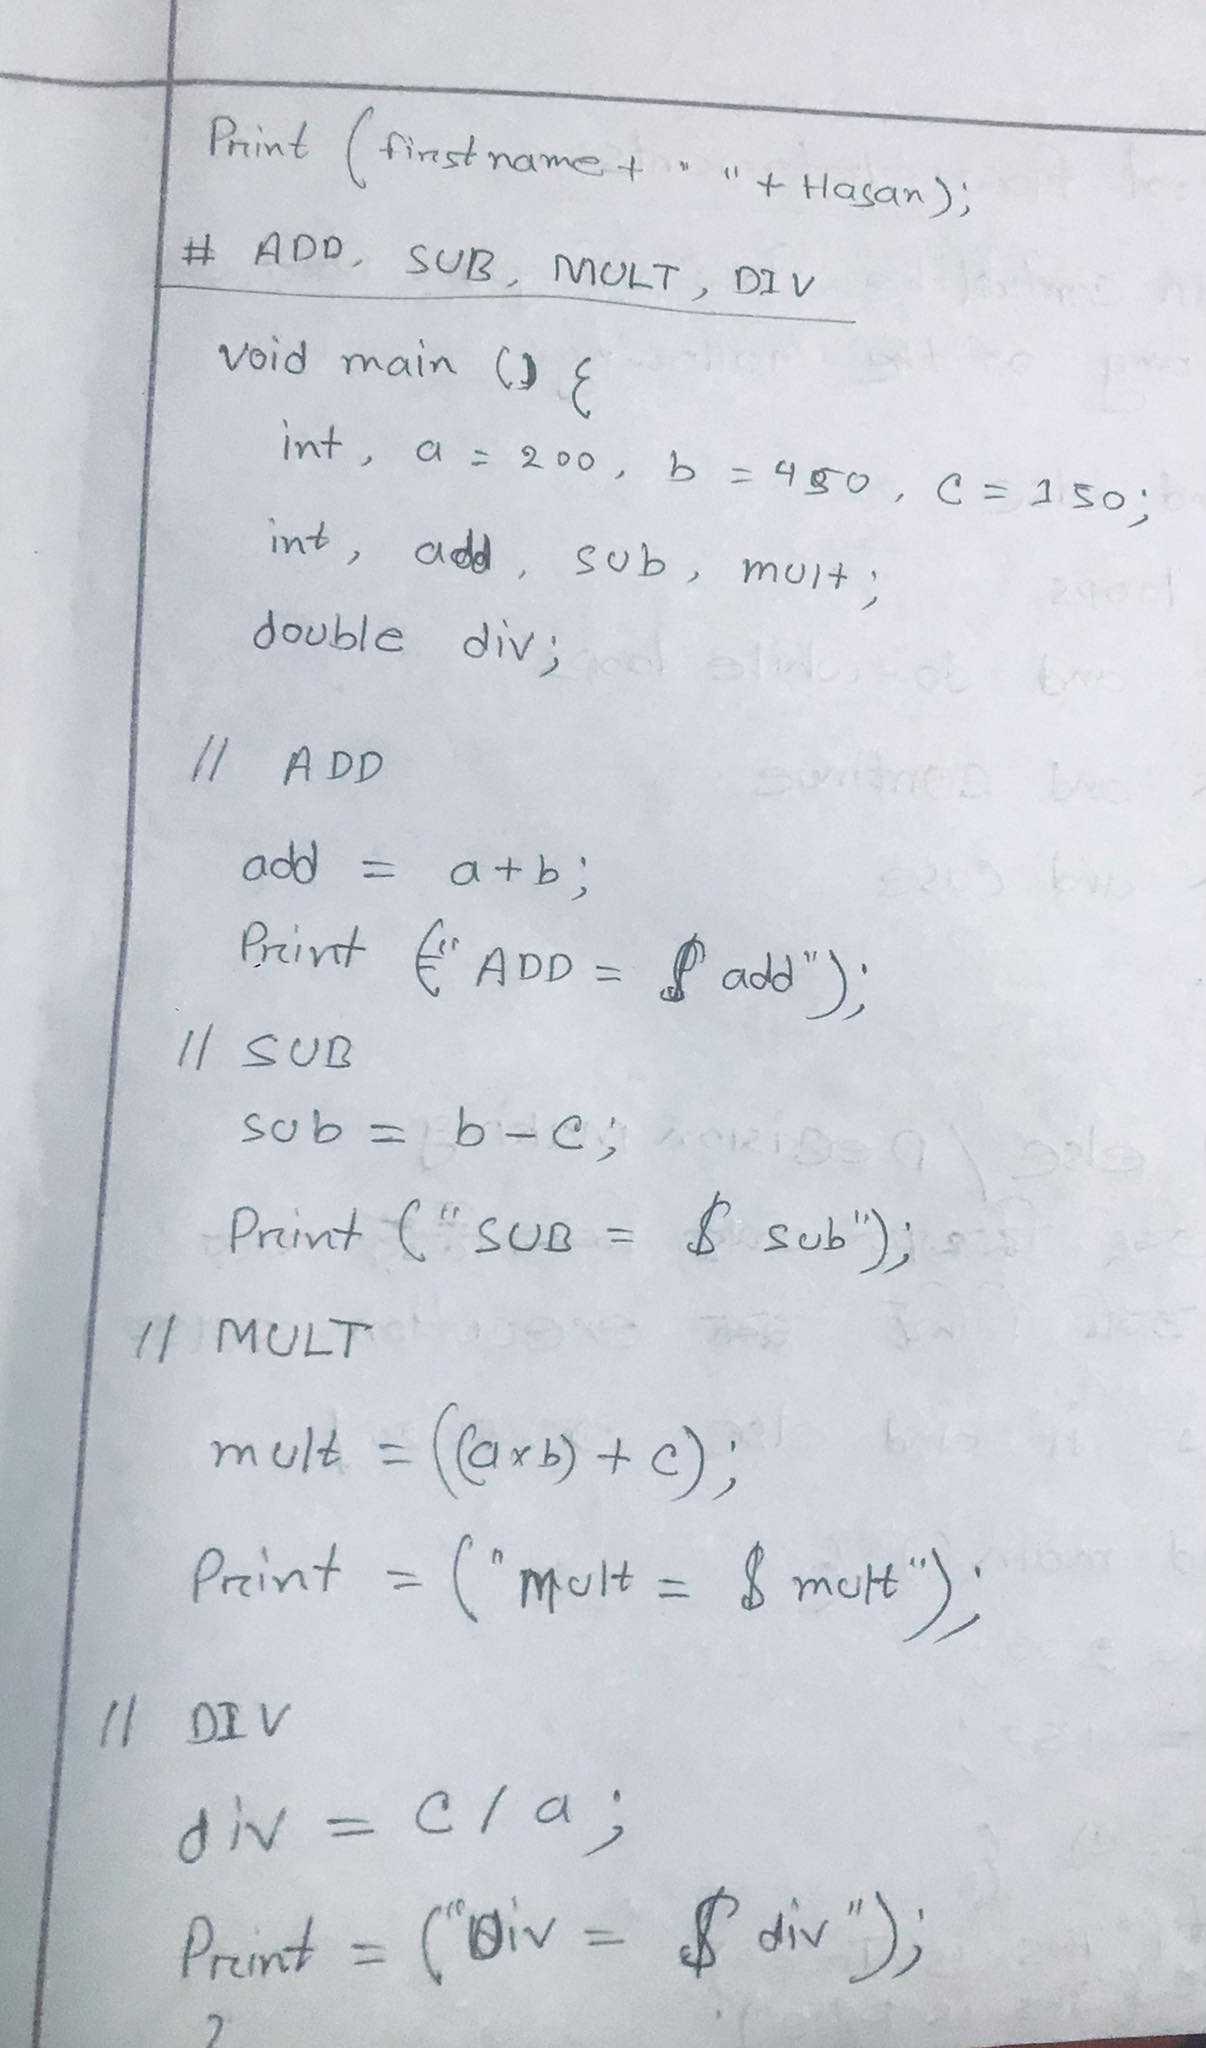 Print (firstname + " " + Hasan);
# ADD, SUB, MULT, DIV
void main () {
int, a = 200, b = 450, c = 150;
int, add, sub, mult;
double div;
// ADD
add = a+b;
Print ("ADD = $ add");
// SUB
sub = b-c;
Print ("SUB = $ sub");
// MULT
mult = ((axb) + c);
Print = ("Mult = $ mult");
// DIV
div = c/a;
Print = ("Div = $ div");
}